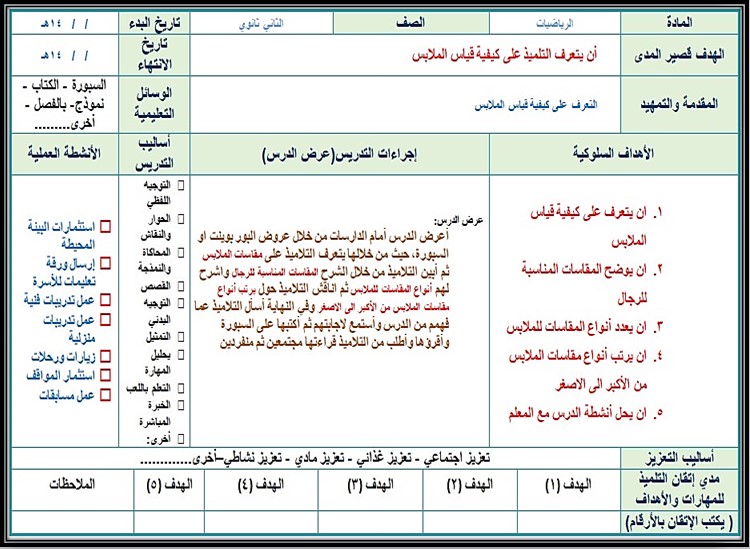 المادة
الرياضيات
الصف
الثاني ثانوي
تاريخ البدء
/ / ١٤هـ
الهدف قصير المدى
أن يتعرف التلميذ على كيفية قياس الملابس
تاريخ
الانتهاء
/ / ١٤هـ
المقدمة والتمهيد
التعرف على كيفية قياس الملابس
الوسائل
التعليمية
السبورة - الكتاب -
نموذج- بالفصل -
أخرى.........
الأهداف السلوكية
إجراءات التدريس(عرض الدرس)
أساليب
التدريس
الأنشطة العملية
١. ان يتعرف على كيفية قياس
الملابس
٢. ان يوضح المقاسات المناسبة
للرجال
٣. ان يعدد أنواع المقاسات للملابس
٤. ان يرتب أنواع مقاسات الملابس
من الأكبر الى الاصغر
٥. ان يحل أنشطة الدرس مع المعلم
عرض الدرس:
أعرض الدرس أمام الدارسات من خلال عروض البور بوينت او
السبورة، حيث من خلالها يتعرف التلاميذ على مقاسات الملابس
ثم أبين التلاميذ من خلال الشرح المقاسات المناسبة للرجال واشرح
لهم أنواع المقاسات للملابس ثم اناقش التلاميذ حول يرتب أنواع
مقاسات الملابس من الأكبر الى الاصغر وفي النهاية أسأل التلاميذ عما
فهمم من الدرس وأستمع لاجابتهم ثم أكتبها على السبورة
وأقرؤها وأطلب من التلاميذ قراءتها مجتمعين ثم منفردين
التوجيه
اللفظي
الحوار
والنقاش
المحاكاة
والنمذجة
القصص
التوجيه
البدني
التمثيل
تحليل
المهارة
التعلم باللعب
الخبرة
المباشرة
أخرى:
استثمارات البيئة
المحيطة
إرسال ورقة
تعليمات للأسرة
عمل تدريبات فنية
عمل تدريبات
منزلية
زيارات ورحلات
استثمار المواقف
عمل مسابقات
أساليب التعزيز
تعزيز اجتماعي - تعزيز غذائي - تعزيز مادي - تعزيز نشاطي–أخرى.............
مدي إتقان التلميذ
للمهارات والأهداف
الهدف (١)
الهدف (٢)
الهدف (٣)
الهدف (٤)
الهدف (٥)
الملاحظات
( يكتب الإتقان بالأرقام)